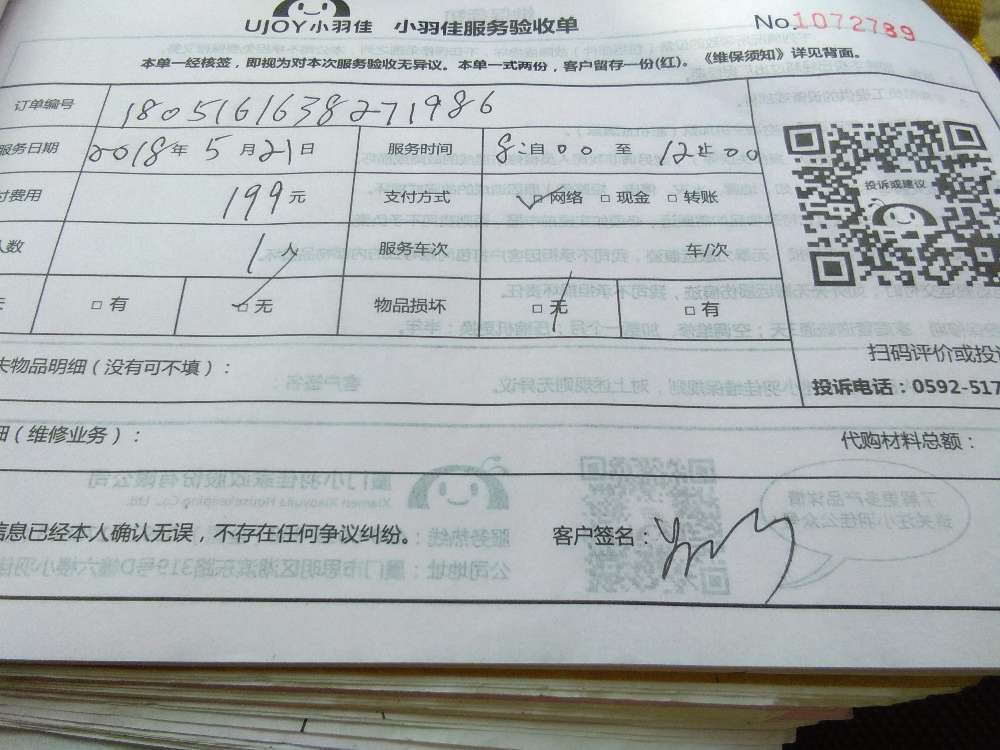 UJOY小羽佳 小羽佳服务验收单
No.1072789
本单一经核签，即视为对本次服务验收无异议。本单一式两份，客户留存一份(红)。《维保须知》详见背面。
订单编号 180516163827198 6
服务日期 2018年 5 月 21 日 服务时间 8:自00 至 12:00
付费用 199元 支付方式 ✓□网络 □现金 □转账
人数 1人 服务车次 车/次
□有 ☑无 物品损坏 □无 □有
投诉或建议
失物品明细（没有可不填）：
扫码评价或投诉
投诉电话：0592-517
细（维修业务）： 代购材料总额：
信息已经本人确认无误，不存在任何争议纠纷。 客户签名：